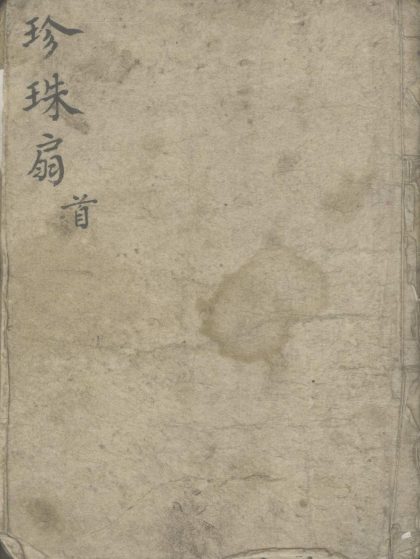 珍珠扇
首